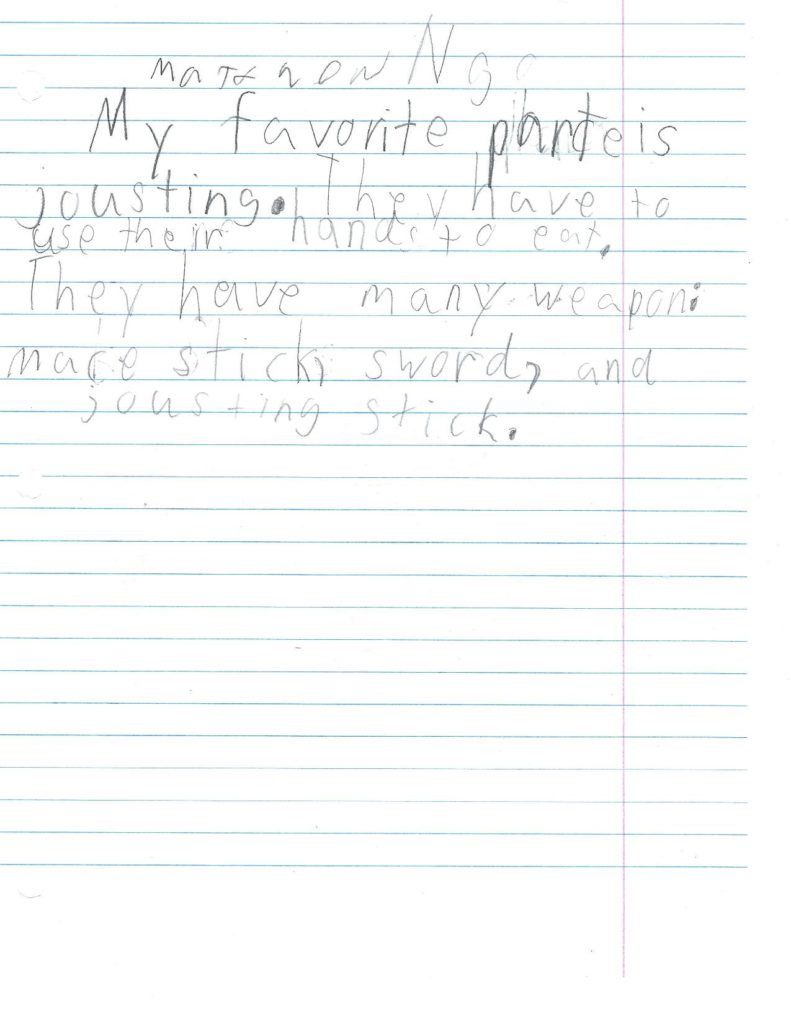 Ngo
My favorite parte is
jousting. They have to
use their hands to eat.
They have many weapon:
mace stick, sword, and
jousting stick.